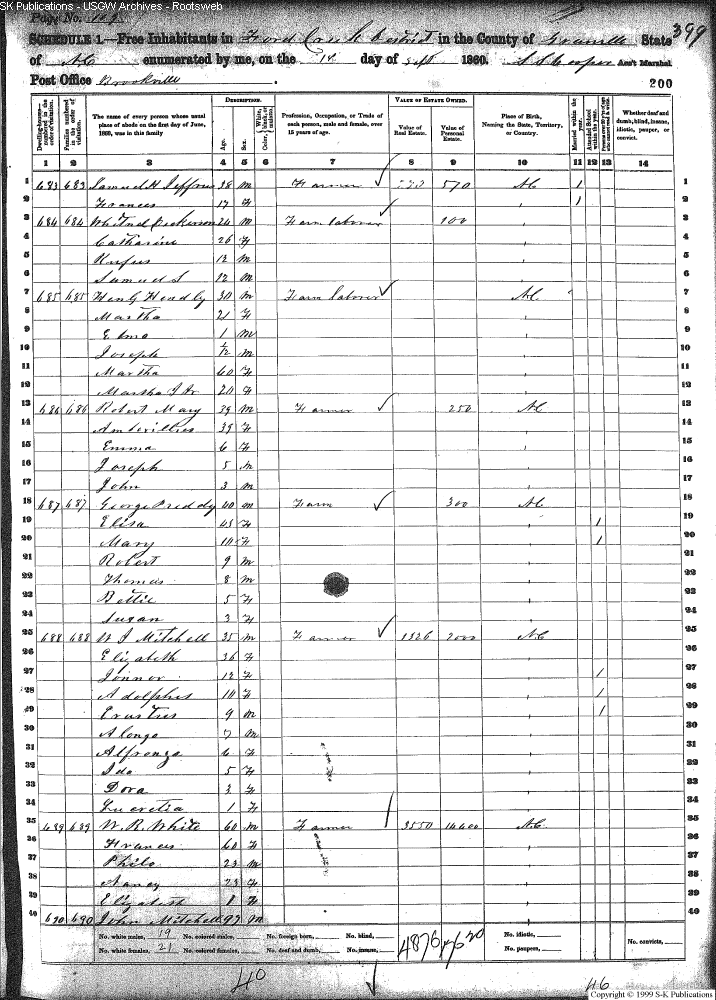 SK Publications - USGW Archives - Rootsweb
Page No. 109
399
SCHEDULE 1.—Free Inhabitants in Ford Creek District in the County of Granville State
of NC enumerated by me, on the 14 day of Sept 1860. Cooper Ass't Marshal
Post Office Brookville
200
Dwelling-houses—numbered in the order of visitation.
Families numbered in the order of visitation.
The name of every person whose usual place of abode on the first day of June, 1860, was in this family
DESCRIPTION.
Age.
Sex.
Color, White, black, or mulatto.
Profession, Occupation, or Trade of each person, male and female, over 15 years of age.
VALUE OF ESTATE OWNED.
Value of Real Estate.
Value of Personal Estate.
Place of Birth, Naming the State, Territory, or Country.
Married within the year.
Attended School within the year.
Whether deaf and dumb, blind, insane, idiotic, pauper, or convict.
1 2 3 4 5 6 7 8 9 10 11 12 13 14
1 683 683 Samuel H Jeffries 38 m Farmer 570 NC 1 1
2 Frances 17 F 1 2
3 684 684 Dickerson 24 m Farm laborer 100 3
4 Catharine 26 F 4
5 Rufus 12 m 5
6 Samuel S 12 m 6
7 685 685 Headly 30 m Farm laborer NC 7
8 Martha 21 F 8
9 1 m 9
10 Joseph m 10
11 Martha 60 F 11
12 Martha J 20 F 12
13 686 686 Robert May 39 m Farmer 250 NC 13
14 39 F 14
15 Emma 6 F 15
16 Joseph 5 m 16
17 John 3 m 17
18 687 687 George Preddy 40 m Farm 300 NC 18
19 Elisa 45 F 1 19
20 Mary 10 F 1 20
21 Robert 9 m 21
22 Thomas 8 m 22
23 Bettie 5 F 23
24 Susan 3 F 24
25 688 688 W J Mitchell 35 m Farmer 1326 2000 NC 25
26 Elizabeth 36 F 26
27 12 F 1 27
28 Adolphus 10 F 1 28
29 Erustus 9 m 1 29
30 Alonzo 7 m 30
31 Alfronza 6 F 31
32 Ida 5 F 32
33 Dora 3 F 33
34 Lucretia 1 F 34
35 689 689 W. R. White 60 m Farmer 3550 NC 35
36 Frances 60 F 36
37 Philo 23 m 37
38 Nancy 23 F 38
39 Elizabeth F 39
40 690 690 John Mitchell 97 m 40
No. white males, 19 No. colored males, No. foreign born, No. blind, 4876 No. idiotic, No. convicts,
No. white females, 21 No. colored females, No. deaf and dumb, No. insane, No. paupers,
40
46
Copyright © 1999 S-K Publications